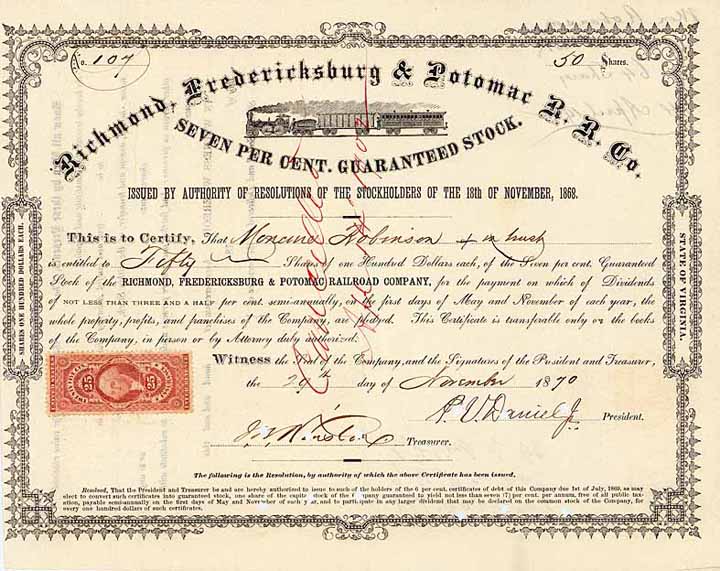 No. 107
50 Shares.
Richmond, Fredericksburg & Potomac R. R. Co.
SEVEN PER CENT. GUARANTEED STOCK.
ISSUED BY AUTHORITY OF RESOLUTIONS OF THE STOCKHOLDERS OF THE 18th OF NOVEMBER, 1868.
This is to Certify, That Moncure Robinson & in trust
is entitled to Fifty Shares of one Hundred Dollars each, of the Seven per cent. Guaranteed
Stock of the RICHMOND, FREDERICKSBURG & POTOMAC RAILROAD COMPANY, for the payment on which of Dividends
of NOT LESS THAN THREE AND A HALF per cent. semi-annually, on the first days of May and November of each year, the
whole property, profits, and franchises of the Company, are pledged. This Certificate is transferable only on the books
of the Company, in person or by Attorney duly authorized.
Witness the Seal of the Company, and the Signatures of the President and Treasurer,
the 29th day of November 1870
P. V. Daniel Jr. President.
J. B. Winston Treasurer.
The following is the Resolution, by authority of which the above Certificate has been issued.
Resolved, That the President and Treasurer be and are hereby authorized to issue to such of the holders of the 6 per cent. certificates of debt of this Company due 1st of July, 1869, as may
elect to convert such certificates into guaranteed stock, one share of the capital stock of the Company guaranteed to yield not less than seven (7) per cent. per annum, free of all public tax-
ation, payable semi-annually on the first days of May and November of each year, and to participate in any larger dividend that may be declared on the common stock of the Company, for
every one hundred dollars of such certificates.
SHARES ONE HUNDRED DOLLARS EACH.
STATE OF VIRGINIA.
25 25
Cancelled